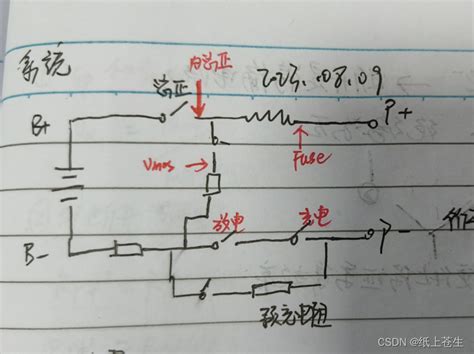 系统
2023.08.09
内总正
总正
B+
P+
Fuse
Vmos
放电
充电
P-
B-
预充电阻
CSDN @纸上苍生